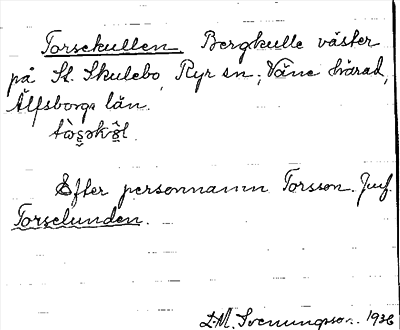 Torsekullen. Bergkulle väster
på St. Skulebo, Ryr sn, Väne härad,
Älfsborgs län.
Efter personnamn Torsson. Jmf.
Torselunden.
L.M. Svenungsson. 1936